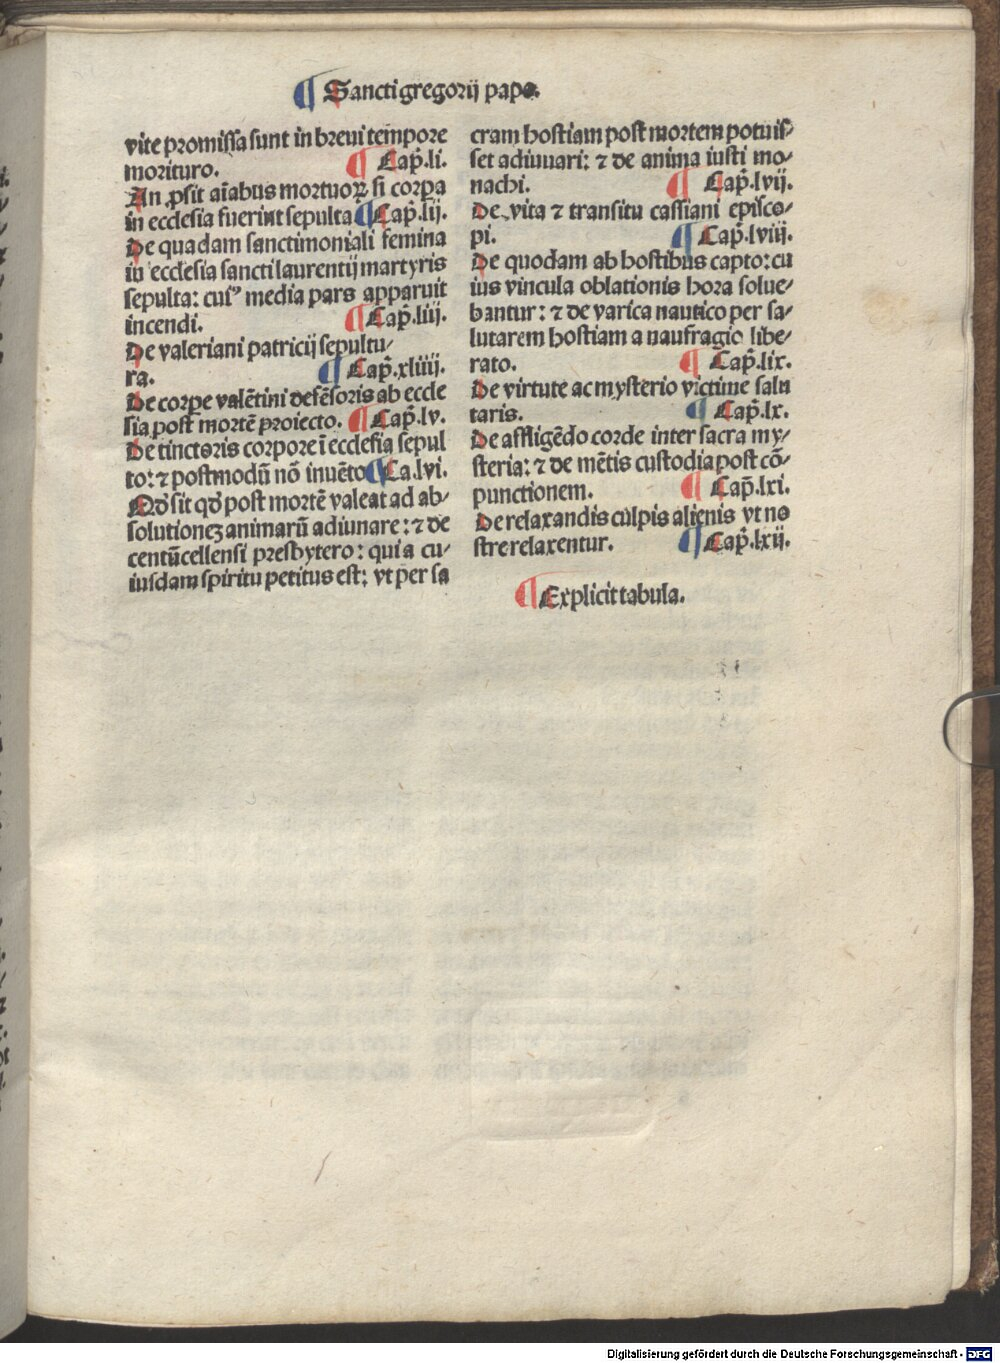 ¶ Sancti gregorij pape.
vite promissa sunt in breui tempore
morituro. ¶ Cap̃.li.
An ꝓsit aĩabus mortuoꝝ si corpa
in ecclesia fuerint sepulta ¶ Cap̃.lij.
De quadam sanctimoniali femina
in ecclesia sancti laurentij martyris
sepulta: cuiꝰ media pars apparuit
incendi. ¶ Cap̃.liij.
De valeriani patricij sepultu/
ra. ¶ Cap̃.xliiij.
De corpe valẽtini defẽsoris ab eccle
sia post mortẽ proiecto. ¶ Cap̃.lv.
De tinctoris corpore ĩ ecclesia sepul
to: ⁊ postmodũ nõ inuẽto ¶ Ca.lvi.
Qđ sit qđ post mortẽ valeat ad ab/
solutioneꝫ animarũ adiuuare: ⁊ de
centũcellensi presbytero: qui a cu/
iusdam spiritu petitus est: vt per sa
cram hostiam post mortem potuis/
set adiuuari: ⁊ de anima iusti mo/
nachi. ¶ Cap̃.lvij.
De vita ⁊ transitu cassiani episco/
pi. ¶ Cap̃.lviij.
De quodam ab hostibus capto: cu
ius vincula oblationis hora solue/
bantur: ⁊ de varica nautico per sa/
lutarem hostiam a naufragio libe/
rato. ¶ Cap̃.lix.
De virtute ac mysterio victime salu
taris. ¶ Cap̃.lx.
De affligẽdo corde inter sacra my/
steria: ⁊ de mẽtis custodia post cõ/
punctionem. ¶ Cap̃.lxi.
De relaxandis culpis alienis vt no
stre relaxentur. ¶ Cap̃.lxij.
¶ Explicit tabula.
Digitalisierung gefördert durch die Deutsche Forschungsgemeinschaft - DFG